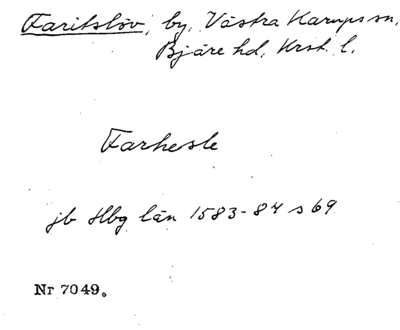 Faritslöv, by, Västra Karups sn,
Bjäre hd, Krst. l.
Farhesle
jb Hbg län 1583-84 s 69
Nr 7049.